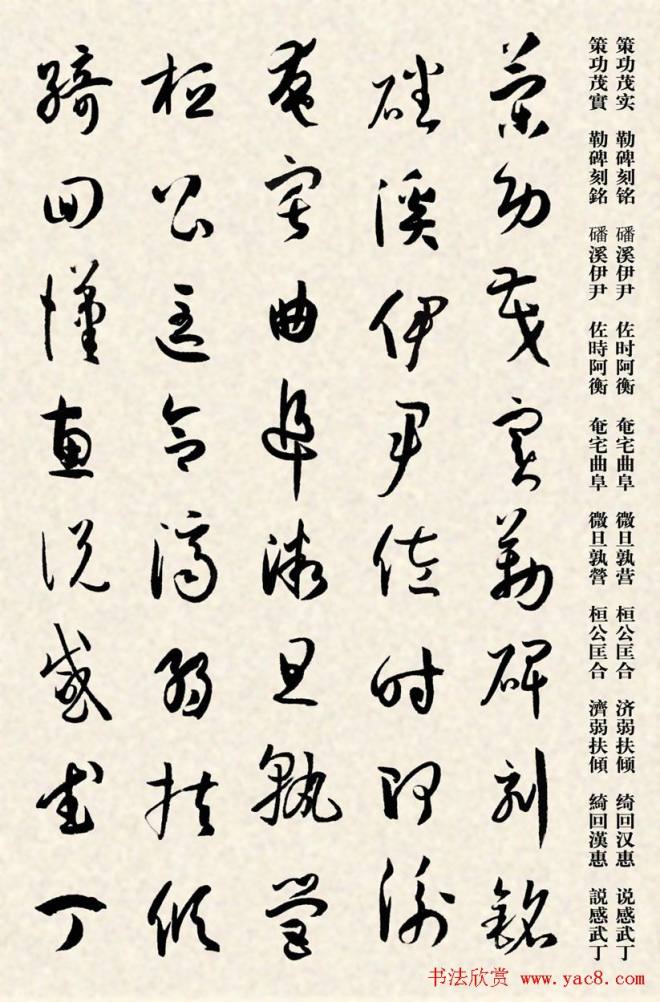 策功茂实 勒碑刻铭 磻溪伊尹 佐时阿衡 奄宅曲阜 微旦孰营 桓公匡合 济弱扶倾 绮回汉惠 说感武丁
策功茂實 勒碑刻銘 磻溪伊尹 佐時阿衡 奄宅曲阜 微旦孰營 桓公匡合 濟弱扶傾 綺回漢惠 説感武丁
策功茂實勒碑刻銘
磻溪伊尹佐时阿衡
奄宅曲阜微旦孰營
桓公匡合濟弱扶傾
綺回漢惠説感武丁
书法欣赏 www.yac8.com